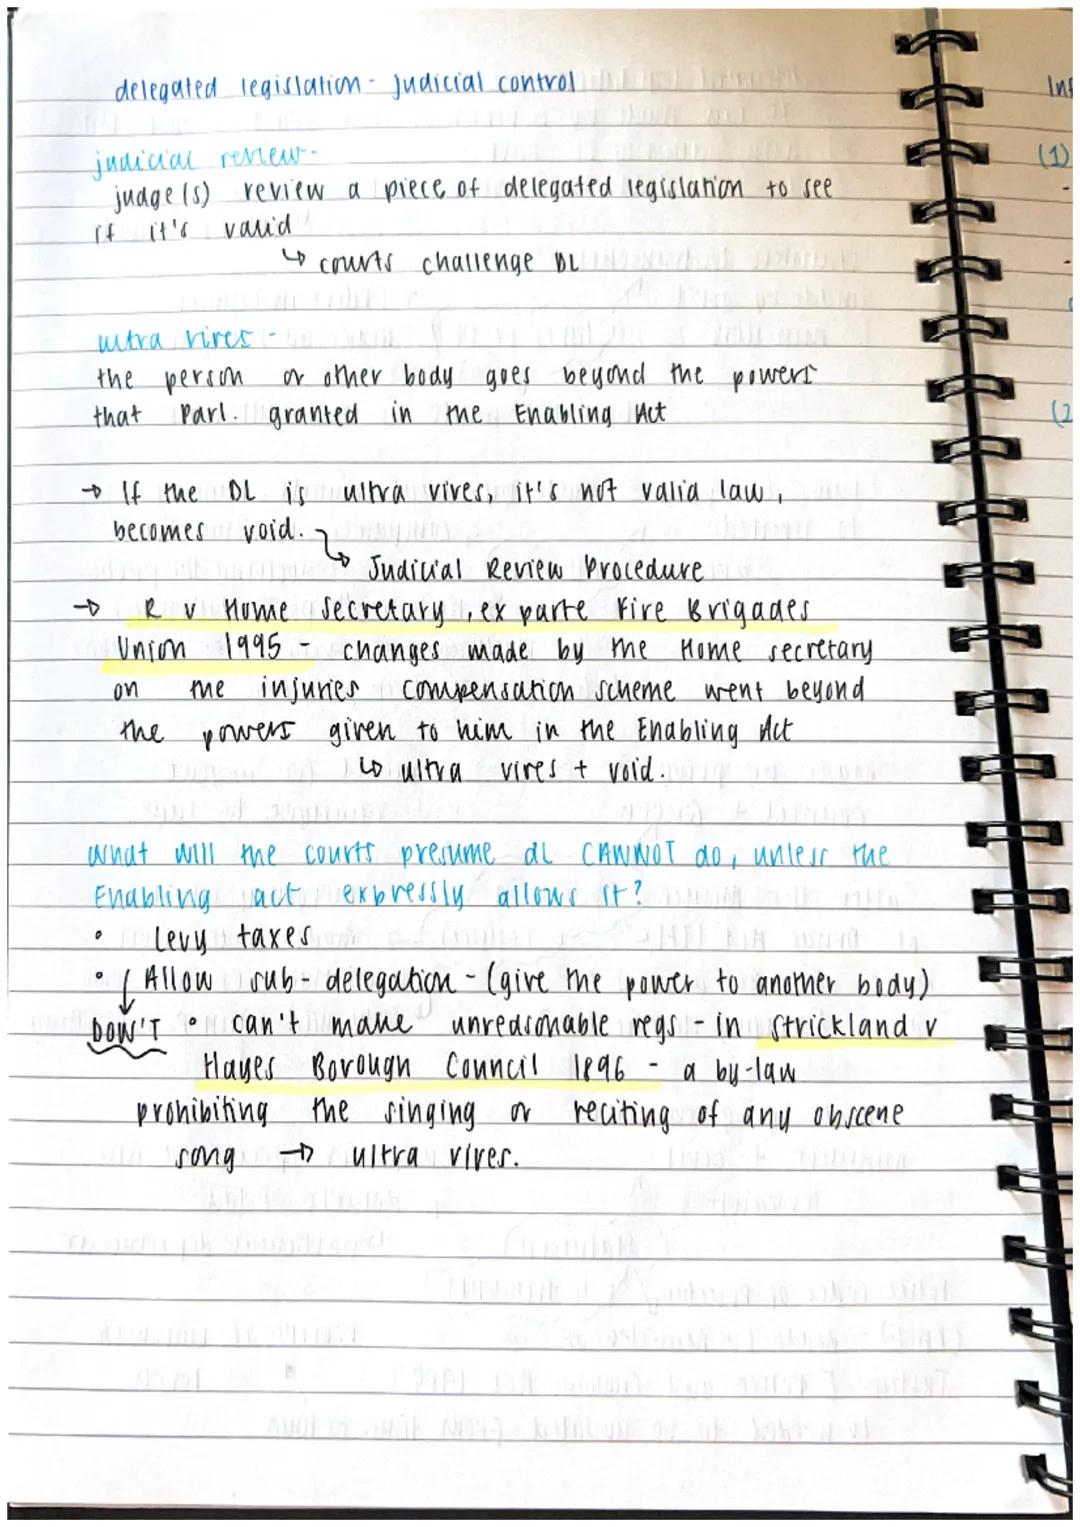 delegated legislation - judicial control
judicial review -
judge(s) review a piece of delegated legislation to see
if it's valid
↳ courts challenge DL
ultra vires -
the person or other body goes beyond the powers
that Parl. granted in the Enabling Act
→ If the DL is ultra vires, it's not valid law,
becomes void.
↳ Judicial Review Procedure
→ R v Home Secretary, ex parte Fire Brigades
Union 1995 - changes made by the Home secretary
on the injuries compensation scheme went beyond
the powers given to him in the Enabling Act
↳ ultra vires + void.
What will the courts presume dL CANNOT do, unless the
Enabling act expressly allows it?
• Levy taxes
• Allow sub-delegation - (give the power to another body)
DON'T • can't make unreasonable regs - in Strickland v
Hayes Borough Council 1896 - a by-law
prohibiting the singing or reciting of any obscene
song → ultra vires.
(1)
(2